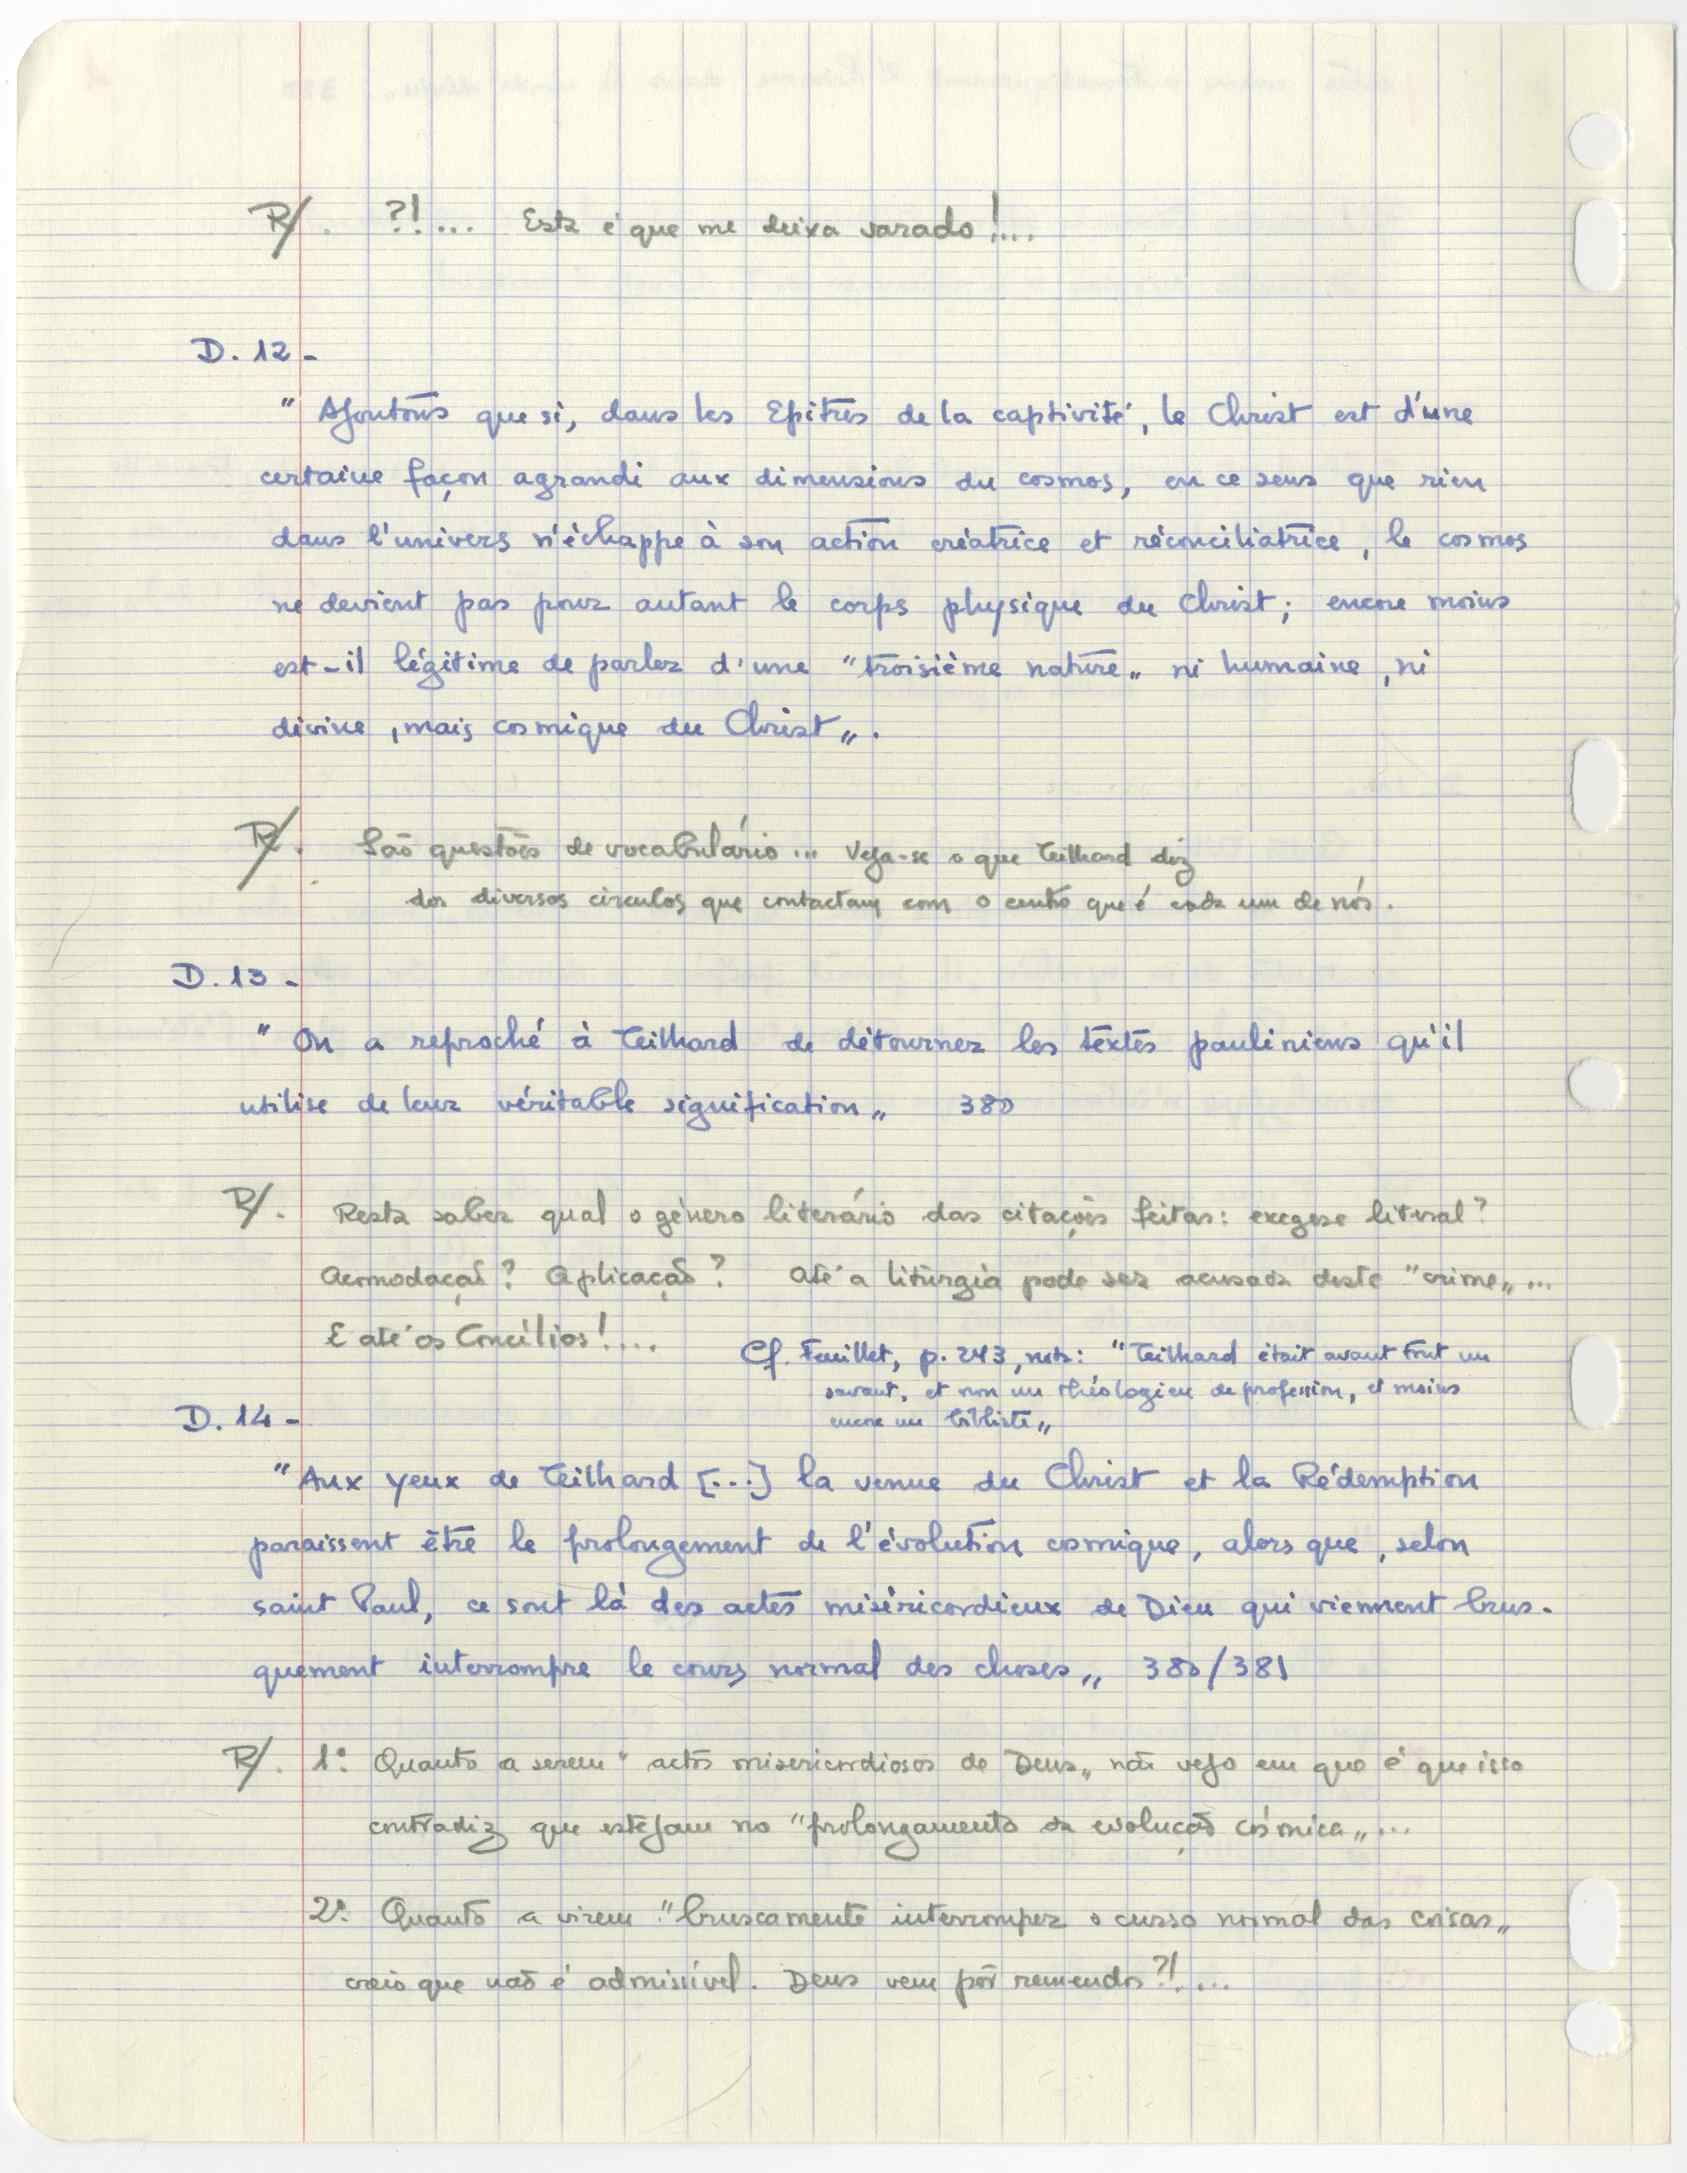 R/. ?!... Esta é que me deixa varado!...
D. 12 -
" Ajoutons que si, dans les Epîtres de la captivité, le Christ est d'une
certaine façon agrandi aux dimensions du cosmos, en ce sens que rien
dans l'univers n'échappe à son action créatrice et réconciliatrice, le cosmos
ne devient pas pour autant le corps physique du Christ; encore moins
est-il légitime de parler d'une "troisième nature„ ni humaine, ni
divine, mais cosmique du Christ„.
R/. São questões de vocabulário... Veja-se o que Teilhard diz
dos diversos círculos que contactam com o centro que é cada um de nós.
D. 13 -
" On a reproché à Teilhard de détourner les textes pauliniens qu'il
utilise de leur véritable signification„ 380
R/. Resta saber qual o género literário das citações feitas: exegese literal?
Acomodação? Aplicação? Até a liturgia pode ser acusada deste "crime„...
E até os Concílios!....
Cf. Feuillet, p. 243, nota: "Teilhard était avant tout un
savant, et non un théologien de profession, et moins
encore un bibliste„
D. 14 -
"Aux yeux de Teilhard [...] la venue du Christ et la Rédemption
paraissent être le prolongement de l'évolution cosmique, alors que, selon
saint Paul, ce sont là des actes miséricordieux de Dieu qui viennent brus-
quement interrompre le cours normal des choses„ 380/381
R/. 1º. Quanto a serem "actos misericordiosos de Deus„ não vejo em que é que isso
contradiz que estejam no "prolongamento da evolução cósmica„...
2º. Quanto a virem "bruscamente interromper o curso normal das coisas„
creio que não é admissível. Deus vem pôr remendos?!...